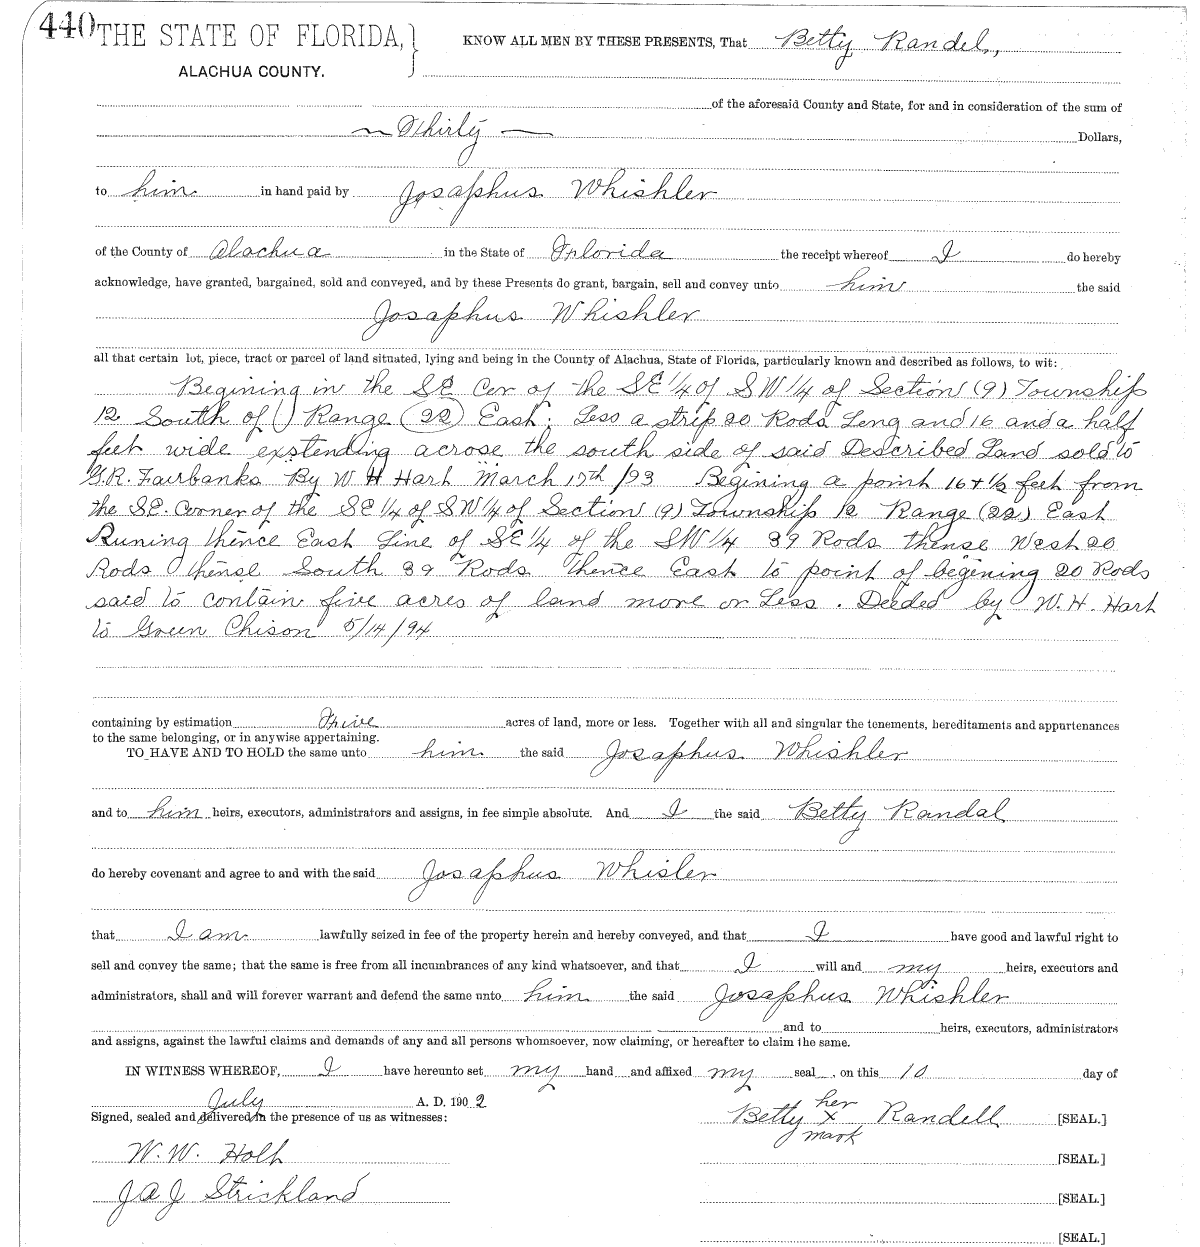 440 THE STATE OF FLORIDA, } KNOW ALL MEN BY THESE PRESENTS, That Betty Randel,
ALACHUA COUNTY.
of the aforesaid County and State, for and in consideration of the sum of
Thirty Dollars,
to him in hand paid by Josaphus Whishler
of the County of Alachua in the State of Florida the receipt whereof I do hereby
acknowledge, have granted, bargained, sold and conveyed, and by these Presents do grant, bargain, sell and convey unto him the said
Josaphus Whishler
all that certain lot, piece, tract or parcel of land situated, lying and being in the County of Alachua, State of Florida, particularly known and described as follows, to wit:
Begining in the SE Cor of the SE 1/4 of SW 1/4 of Section (9) Township
12 South of Range (22) East; Less a strip 20 Rods Leng and 16 and a half
feet wide exstending acrose the south side of said Described Land sold to
G.R. Fairbanks By W H Hart March 17th /93 Begining a point 16 + 1/2 feet from
the SE. Corner of the SE 1/4 of SW 1/4 of Section (9) Township 12 Range (22) East
Runing thence East Line of SE 1/4 of the SW 1/4 39 Rods thense West 20
Rods thense South 39 Rods Thence East to point of begening 20 Rods
said to contain five acres of land more or Less. Deeded by W. H. Hart
to Green Chison 5/14/94
containing by estimation Five acres of land, more or less. Together with all and singular the tenements, hereditaments and appurtenances
to the same belonging, or in anywise appertaining.
TO HAVE AND TO HOLD the same unto him the said Josaphus Whishler
and to him heirs, executors, administrators and assigns, in fee simple absolute. And I the said Betty Randal
do hereby covenant and agree to and with the said Josaphus Whisler
that I am lawfully seized in fee of the property herein and hereby conveyed, and that I have good and lawful right to
sell and convey the same; that the same is free from all incumbrances of any kind whatsoever, and that I will and my heirs, executors and
administrators, shall and will forever warrant and defend the same unto him the said Josaphus Whishler
and to heirs, executors, administrators
and assigns, against the lawful claims and demands of any and all persons whomsoever, now claiming, or hereafter to claim the same.
IN WITNESS WHEREOF, I have hereunto set my hand and affixed my seal, on this 10 day of
July A. D. 1902
Signed, sealed and delivered in the presence of us as witnesses:
Betty her x mark Randell [SEAL.]
W. W. Holt [SEAL.]
J A J Strickland [SEAL.]
[SEAL.]